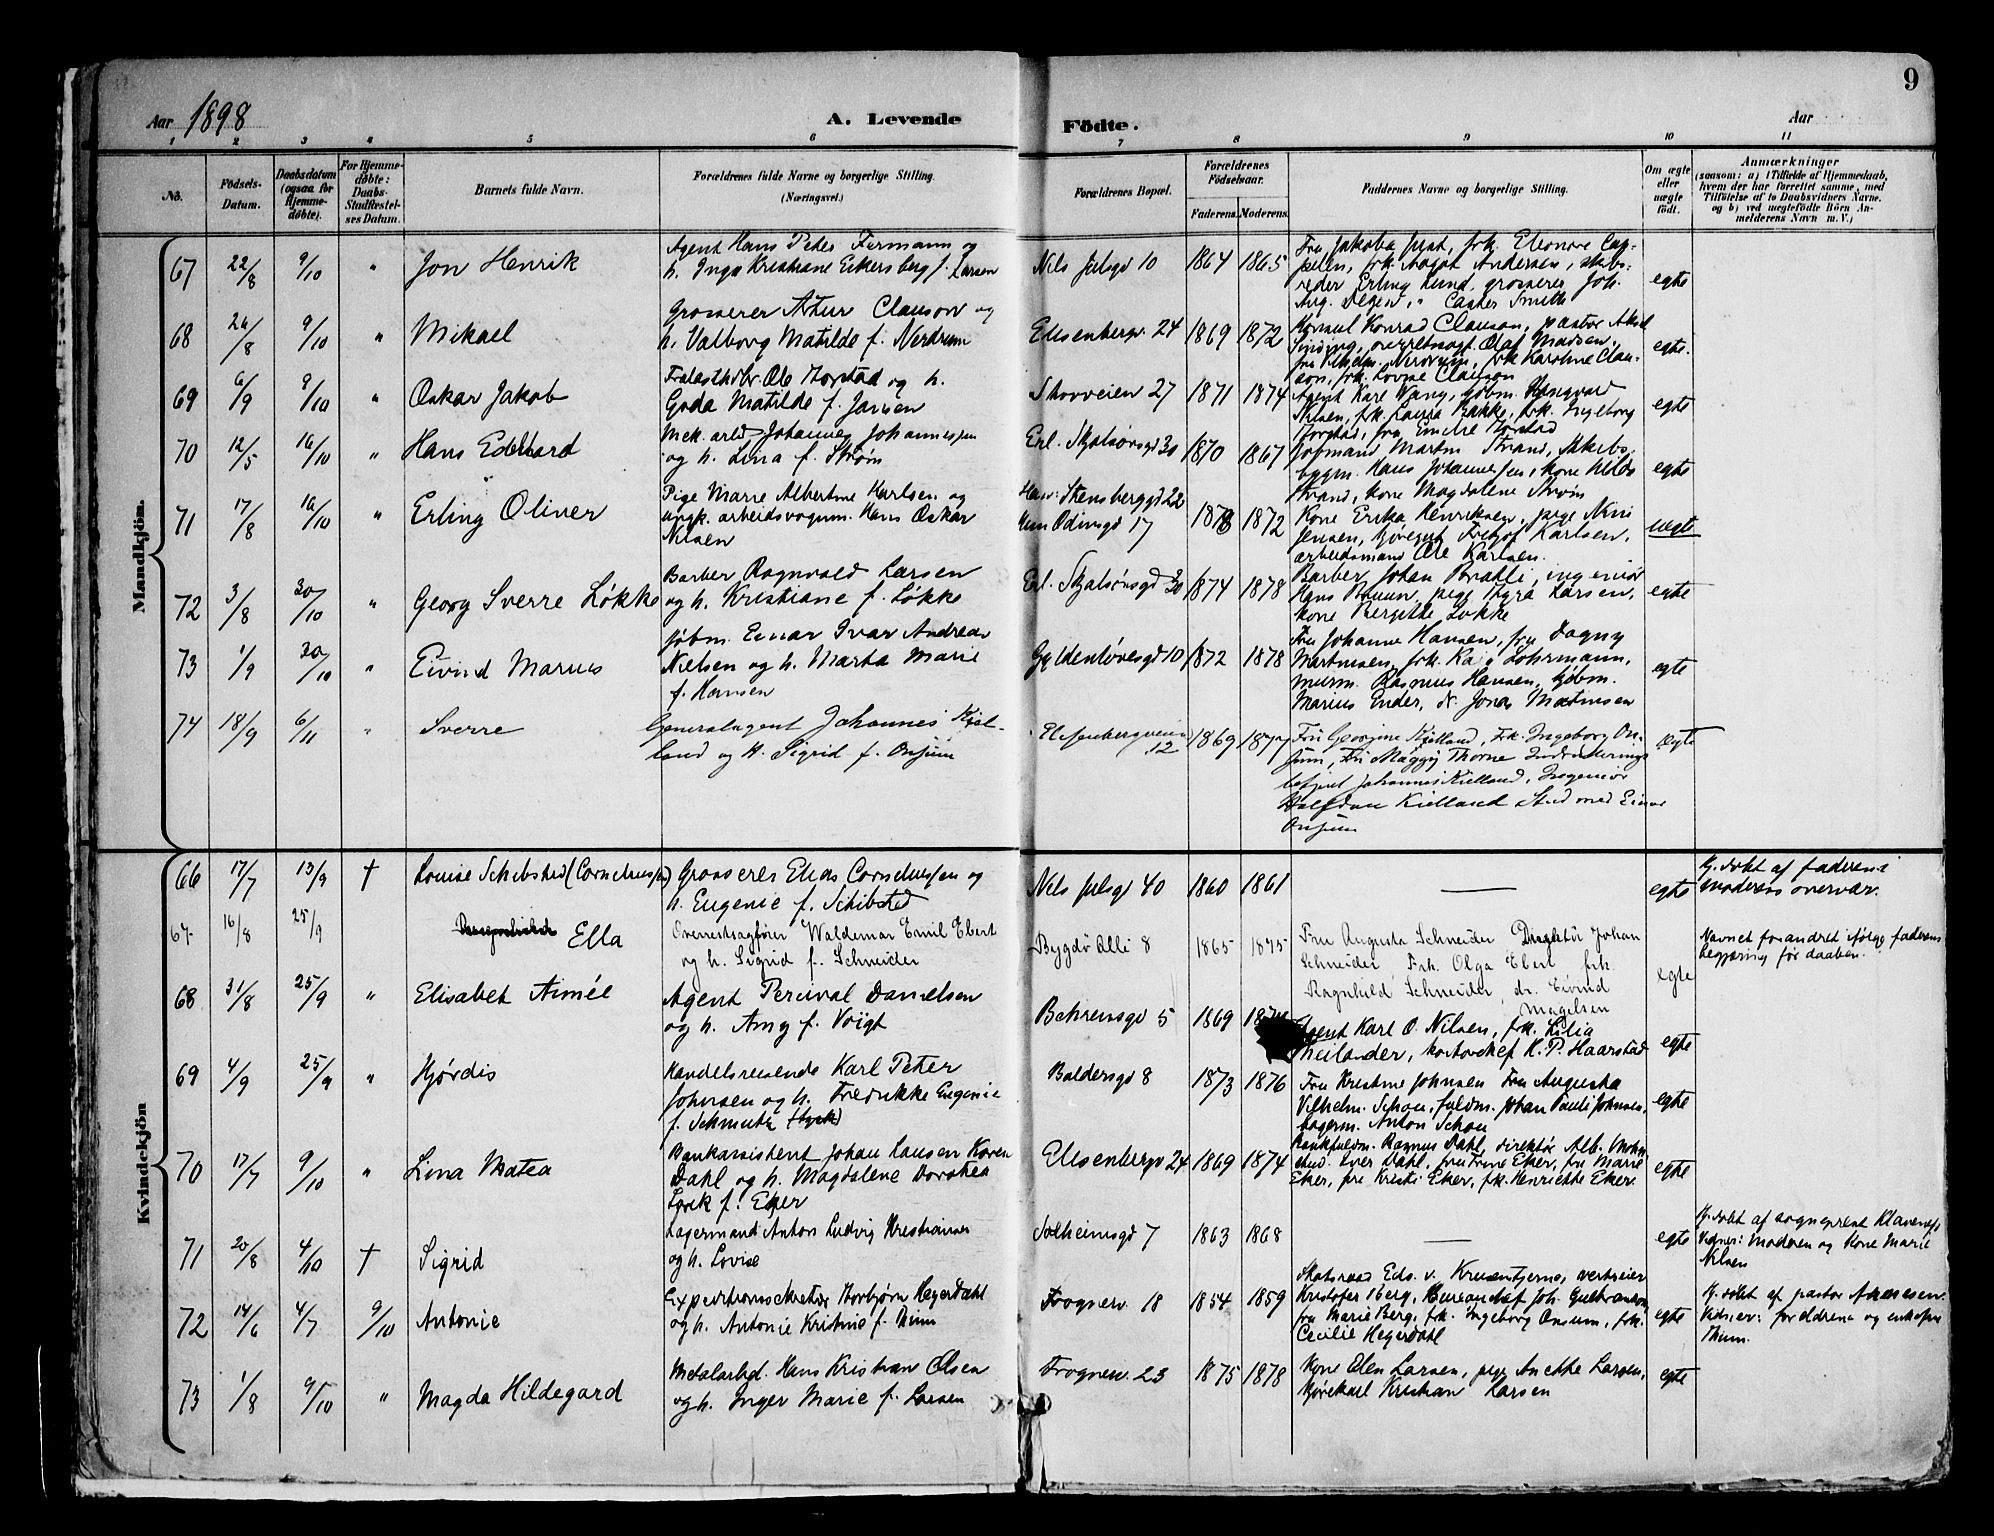 9
Aar 1898
A. Levende
Födte.
Aar
1 2 3 4 5 6 7 8 9 10 11
No.
Födsels-Datum.
Daabsdatum (ogsaa for Hjemme-døbte).
For Hjemme-døbte: Daabs-Stadfæstel-ses Datum.
Barnets fulde Navn.
Forældrenes fulde Navne og borgerlige Stilling. (Næringsvei.)
Forældrenes Bopæl.
Forældrenes Födselsaar.
Faderens. Moderens.
Faddernes Navne og borgerlige Stilling.
Om ægte eller uægte födt.
Anmærkninger
(saasom: a) i Tilfælde af Hjemmedaab, hvem der har forrettet samme, med Tilföielse af to Daabsvidners Navne, og b) ved uægtefödte Börn An-melderens Navn m. V.)
Mandkjön.
67 22/8 9/10 " Jon Henrik
Agent Hans Peter Fermann og
h. Inga Kristiane Eckersberg f. Larsen
Nils Julsgd 10 1864 1865
Fru Jakoba Just, frk. Eleonore Cap-
pelen, frk. Andersen, skibs-
reder Erling Lund, grosserer Joh.
Aug. " Casper Smith
egte
68 26/8 9/10 " Mikael
Grosserer Artur Clauson og
h. Valborg Matilde f. Nerdrum
Elisenbergv 24 1869 1872
Konsul Konrad Clauson, pastor Aksel
Sinding, overretssagf. Olaf Madsen,
fru Vilhelm. Nerdrum, frk Karoline Clau-
son, frk. Lovise Clauson
egte.
69 6/9 9/10 " Oskar Jakob
Ole Torstad og h.
Goda Matilde f. Jansen
Skovveien 27 1871 1874
Agent Karl Wang, Kjøbm.
Nilsen, frk. Laura Bakke, frk. Ingeborg
Torstad, fru Emilie Torstad
egte
70 12/5 16/10 " Hans Edvard
Mek. arb. Johannes Johannessen
og h. Lina f. Strøm
Erl. Skjalsønsgd 30 1870 1867
Formand Martin Strand, Skibs-
byggm. Hans Johannessen, kone Hilda
Strand, kone Magdalene Strøm
egte
71 17/8 16/10 " Erling Oliver
Pige Marie Albertine Karlsen og
ungk. arbeidsvognm. Hans Oskar
Nilsen
Han: Stensberggd 22
Hun Odinsgd 17 1878 1872
Kone Erika Henriksen, pige Nini
Jensen, Kjøregut Fritjof Karlsen,
arbeidsmand Ole Karlsen.
uegte
72 3/8 30/10 " Georg Sverre Løkke
Barber Ragnvald Larsen
og h. Kristiane f. Løkke
Erl. Skjalsønsgd 30 1874 1878
Barber Johan Bratli, ingeniør
Hans Bruun, pige Thyra Larsen,
kone Bergette Løkke
egte
73 1/9 30/10 " Eivind Marius
Kjøbm. Einar Ivar Andreas
Nielsen og h. Marta Marie
f. Hansen
Gyldenløvesgd 10 1872 1878
Fru Johanne Hansen, fru Dagny
Martinsen, frk. Kaja Lohrmann,
murm. Rasmus Hansen, kjøbm.
Marius Ender, d. Jonas Martinsen
egte
74 18/9 6/11 " Sverre
Generalagent Johannes Kjel-
land og H. Sigrid f. Onsum
Elisenbergveien
12 1869 1877
Fru Georgine Kjelland, Frk. Ingeborg On-
sum, Fru Maggy Thorne
Johannes Kielland, Ingeniør
Halfdan Kielland Stud med Einar
Onsum
ægte
Kvindekjön
66 17/7 13/9 † Louise Schibsted (Cornelius͡sen)
Grosserer Elias Corneliussen og
h. Eugenie f. Schibsted
Nils Julsgd 40 1860 1861 — egte
Hj. døbt af faderen i
moderens overvær.
67. 16/8 25/9 Ella
Overretssagfører Waldemar Emil Ebert
og h. Sigrid f. Schneider
Bygdø Alle 8 1865 1875
Fru Augusta Schneider Direktør Johan
Schneider, Frk. Olga Ebert frk.
Ragnhild Schneider, dr. Eivind
Magelsen
egte
Navnet forandret ifølge faderens
begjæring før daaben.
68 31/8 25/9 " Elisabet Aimée
Agent Percival Danielsen
og h. Amy f. Voigt
Behrensgd 5 1869
Agent Karl O. Nilsen, frk. Lilia
Theilander, kontorchef K. P. Haarstad
egte
69 4/9 25/9 " Hjørdis
Handelsreisende Karl Peter
Johnsen og h. Fredrikke Eugenie
f. Schmutz (tysk)
Baldersgd 8 1873 1876
Fru Kristine Johnsen Fru Augusta
Vilhelm. Schou, fuldm. Johan Pauli Johnsen,
bagerm. Anton Schou
egte
70 17/7 9/10 " Lina Matea
Bankassistent Johan Lausen Koren
Dahl og h. Magdalene Dorotea
f. Eker
Elisenbergv 24 1869 1874
Bankfuldm. Rasmus Dahl, direktør Alb. Mohn
stud. Iver Dahl, fru Trine Eker, fru Marie
Eker, fru Kristi Eker, frk. Henriette Eker.
egte
71 20/8 4/10 † Sigrid
Lagermand Anton Ludvig Kristiansen
og h. Lovise
Solheimsgd 7 1863 1868 — egte
Hj. døbt af sogneprest Klaveness
Vidner: Moderen og Kone Marie
Nilsen
72 14/6 4/7 9/10 Antonie
Expeditionssekretær Torbjørn Heyerdahl
og h. Antonie Kristine f. Thum
Frognerv 18 1854 1859
Statsraad Eds. v. Krusentjerne, verkseier
Kristofer Berg, Bureauchef Joh. Gulbranson,
fru Marie Berg, frk. Ingeborg Onsum, frk.
Cecilie Hegerdahl
egte
Hj. døbt af pastor Andresen.
Vidner: foreldrene og enkefru
Thum.
73 1/8 9/10 " Magda Hildegard
Metalarbd. Hans Kristian Olsen
og h. Inger Marie f. Larsen
Frognerv. 23 1875 1878
Kone Elen Larsen, pige Anette Larsen,
kjørekarl Kristian Larsen
egte